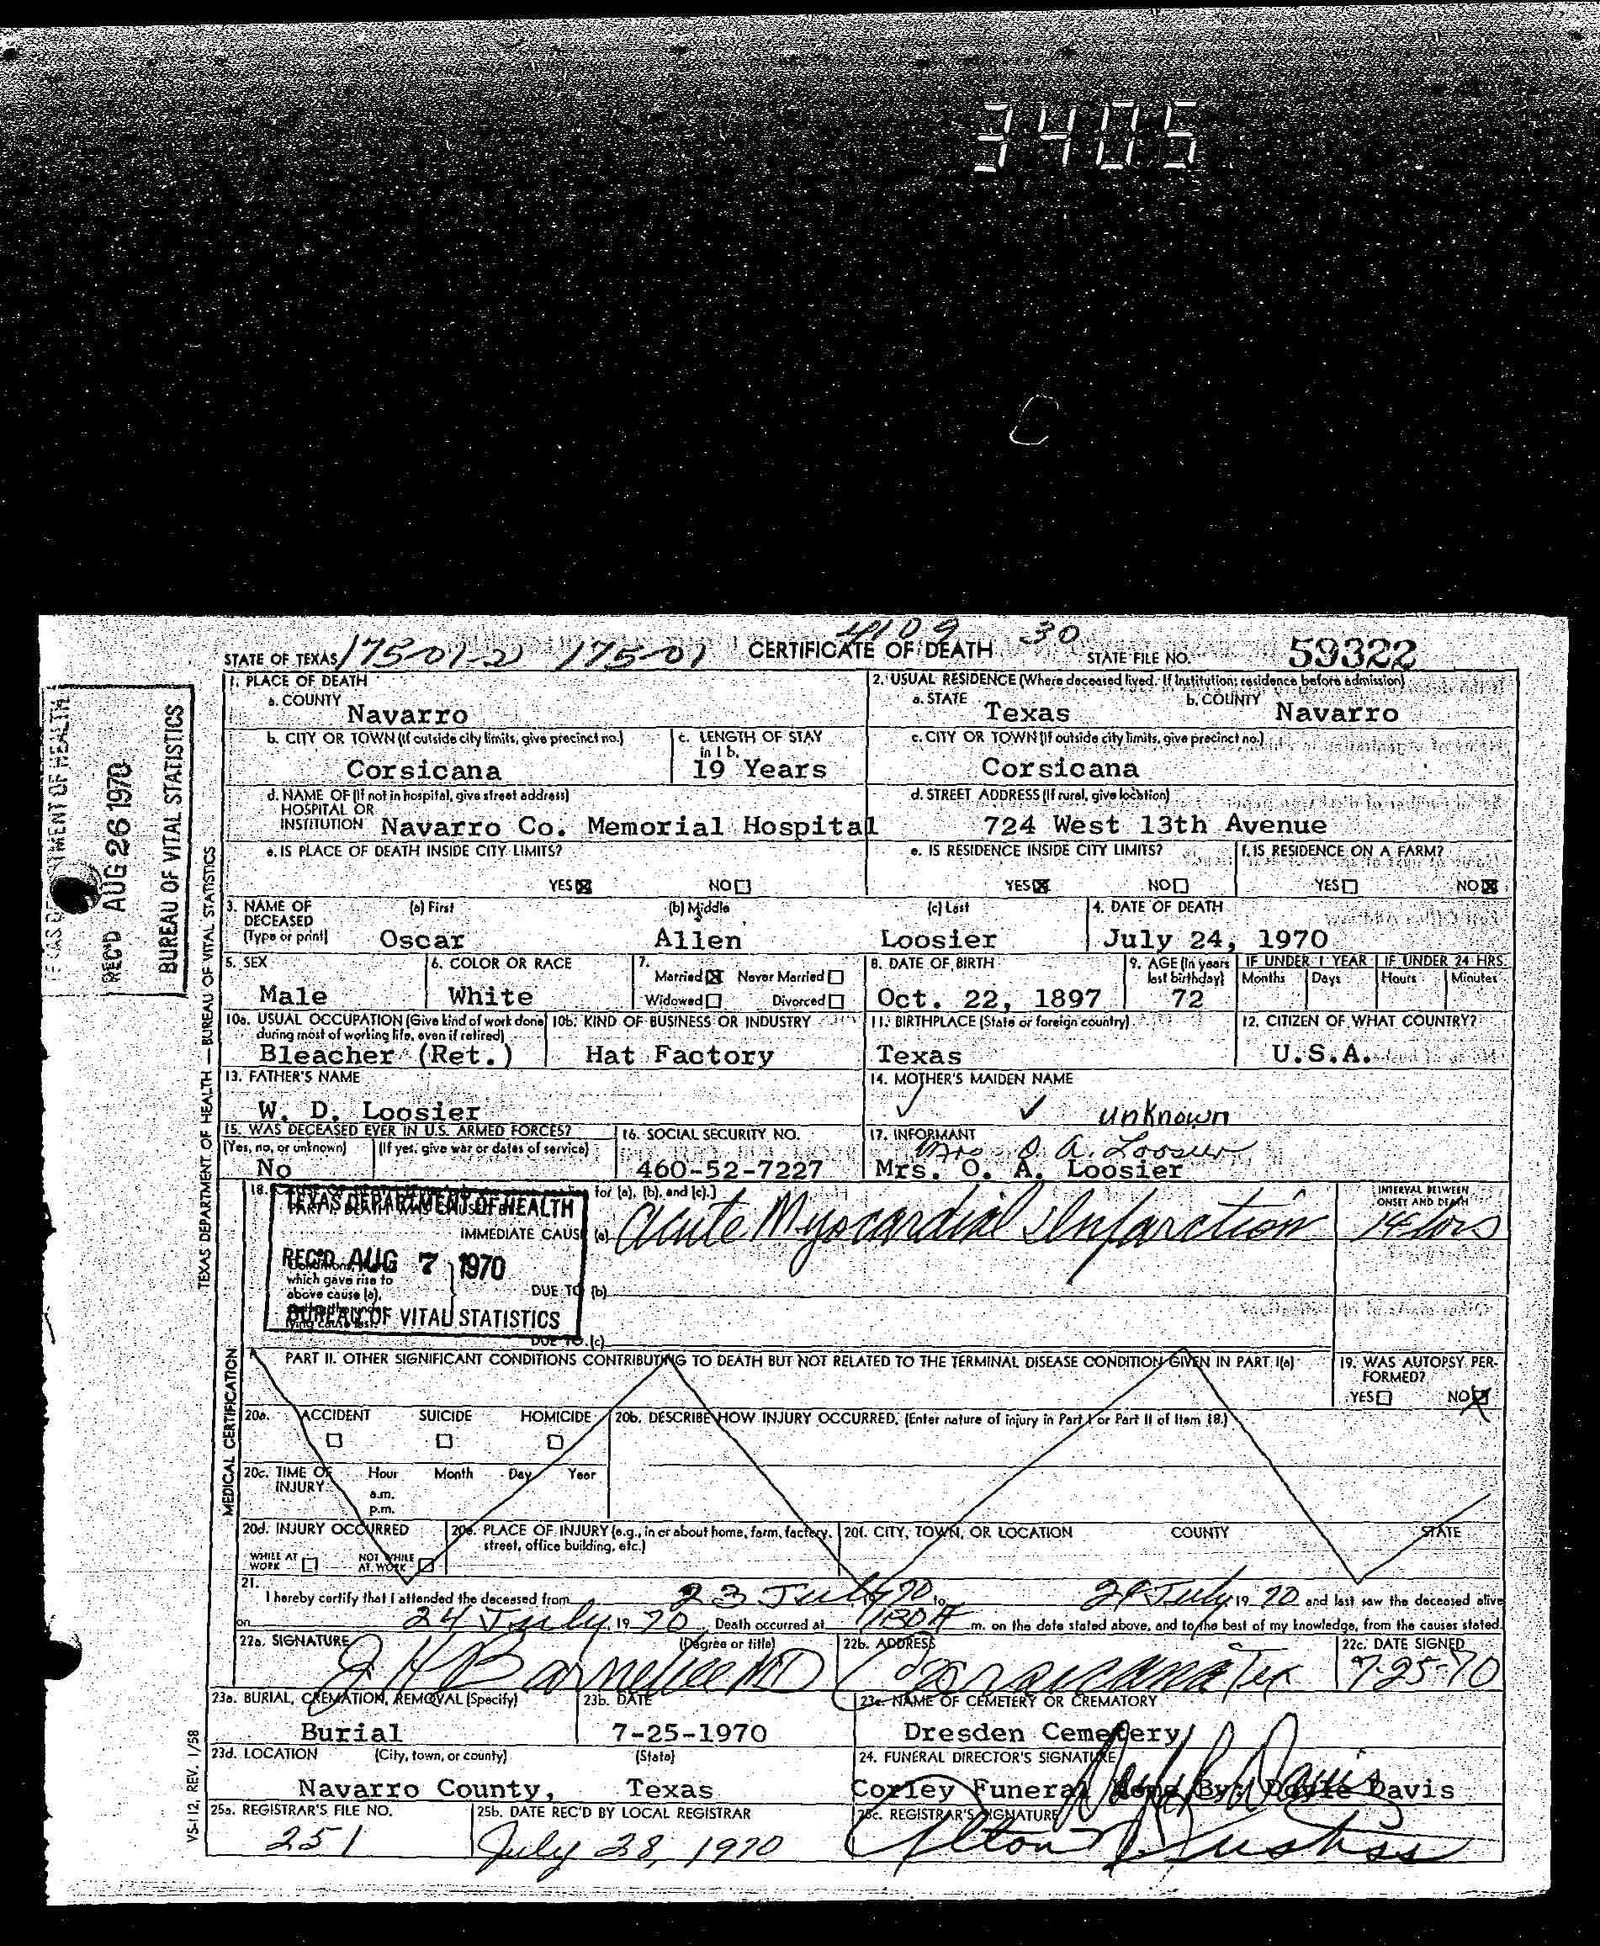 3405
C
4109 30
STATE OF TEXAS 175-01-2 175-01 CERTIFICATE OF DEATH STATE FILE NO. 59322
1. PLACE OF DEATH
a. COUNTY
Navarro
2. USUAL RESIDENCE (Where deceased lived. If institution: residence before admission)
a. STATE Texas b. COUNTY Navarro
b. CITY OR TOWN (If outside city limits, give precinct no.)
Corsicana
c. LENGTH OF STAY
in 1 b.
19 Years
c. CITY OR TOWN (If outside city limits, give precinct no.)
Corsicana
d. NAME OF (If not in hospital, give street address)
HOSPITAL OR
INSTITUTION Navarro Co. Memorial Hospital
d. STREET ADDRESS (If rural, give location)
724 West 13th Avenue
e. IS PLACE OF DEATH INSIDE CITY LIMITS?
YES ☒ NO ☐
e. IS RESIDENCE INSIDE CITY LIMITS?
YES ☒ NO ☐
f. IS RESIDENCE ON A FARM?
YES ☐ NO ☒
3. NAME OF DECEASED (Type or print)
(a) First (b) Middle (c) Last
Oscar Allen Loosier
4. DATE OF DEATH
July 24, 1970
5. SEX
Male
6. COLOR OR RACE
White
7.
Married ☒ Never Married ☐
Widowed ☐ Divorced ☐
8. DATE OF BIRTH
Oct. 22, 1897
9. AGE (In years last birthday)
72
IF UNDER 1 YEAR
Months Days
IF UNDER 24 HRS.
Hours Minutes
10a. USUAL OCCUPATION (Give kind of work done
during most of working life, even if retired)
Bleacher (Ret.)
10b. KIND OF BUSINESS OR INDUSTRY
Hat Factory
11. BIRTHPLACE (State or foreign country)
Texas
12. CITIZEN OF WHAT COUNTRY?
U.S.A.
13. FATHER'S NAME
W. D. Loosier
14. MOTHER'S MAIDEN NAME
unknown
15. WAS DECEASED EVER IN U.S. ARMED FORCES?
(Yes, no, or unknown) (If yes, give war or dates of service)
No
16. SOCIAL SECURITY NO.
460-52-7227
17. INFORMANT
Mrs. O. A. Loosier
Mrs. O. A. Loosier
18. for (a), (b), and (c).]
IMMEDIATE CAUSE (a) Acute Myocardial Infarction
INTERVAL BETWEEN
ONSET AND DEATH
14 hrs
which gave rise to
above cause (a),
lying cause last.
DUE TO (b)
DUE TO (c)
TEXAS DEPARTMENT OF HEALTH
REC'D AUG 7 1970
BUREAU OF VITAL STATISTICS
PART II. OTHER SIGNIFICANT CONDITIONS CONTRIBUTING TO DEATH BUT NOT RELATED TO THE TERMINAL DISEASE CONDITION GIVEN IN PART I(a)
19. WAS AUTOPSY PERFORMED?
YES ☐ NO ☒
20a. ACCIDENT SUICIDE HOMICIDE
☐ ☐ ☐
20b. DESCRIBE HOW INJURY OCCURRED. (Enter nature of injury in Part I or Part II of Item 18.)
20c. TIME OF INJURY
Hour Month Day Year
a.m.
p.m.
20d. INJURY OCCURRED
WHILE AT WORK ☐ NOT WHILE AT WORK ☐
20e. PLACE OF INJURY (e.g., in or about home, farm, factory,
street, office building, etc.)
20f. CITY, TOWN, OR LOCATION COUNTY STATE
21.
I hereby certify that I attended the deceased from 23 July 1970 to 24 July 19 70 and last saw the deceased alive
on 24 July 19 70. Death occurred at 1130 A m. on the date stated above, and to the best of my knowledge, from the causes stated.
22a. SIGNATURE (Degree or title)
J H Barnebee MD
22b. ADDRESS
Corsicana Tex
22c. DATE SIGNED
7-25-70
23a. BURIAL, CREMATION, REMOVAL (Specify)
Burial
23b. DATE
7-25-1970
23c. NAME OF CEMETERY OR CREMATORY
Dresden Cemetery
23d. LOCATION (City, town, or county) (State)
Navarro County, Texas
24. FUNERAL DIRECTOR'S SIGNATURE
Corley Funeral Home By: Doyle Davis
25a. REGISTRAR'S FILE NO.
251
25b. DATE REC'D BY LOCAL REGISTRAR
July 28, 1970
25c. REGISTRAR'S SIGNATURE
Alton
TEXAS DEPARTMENT OF HEALTH
REC'D AUG 26 1970
BUREAU OF VITAL STATISTICS
TEXAS DEPARTMENT OF HEALTH — BUREAU OF VITAL STATISTICS
MEDICAL CERTIFICATION
VS-112, REV. 1/58